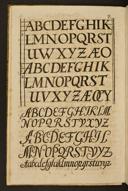 ABCDEFGHIK
LMNOPQRST
UWXYZÆO
ABCDEFGHIK
LMNOPQRST
UVXYZÆŒY
ABCDEFGHIKLM
NOPQRSTVXYZ
ABCDEFGHIJL
MNOPQRSTVXYZ